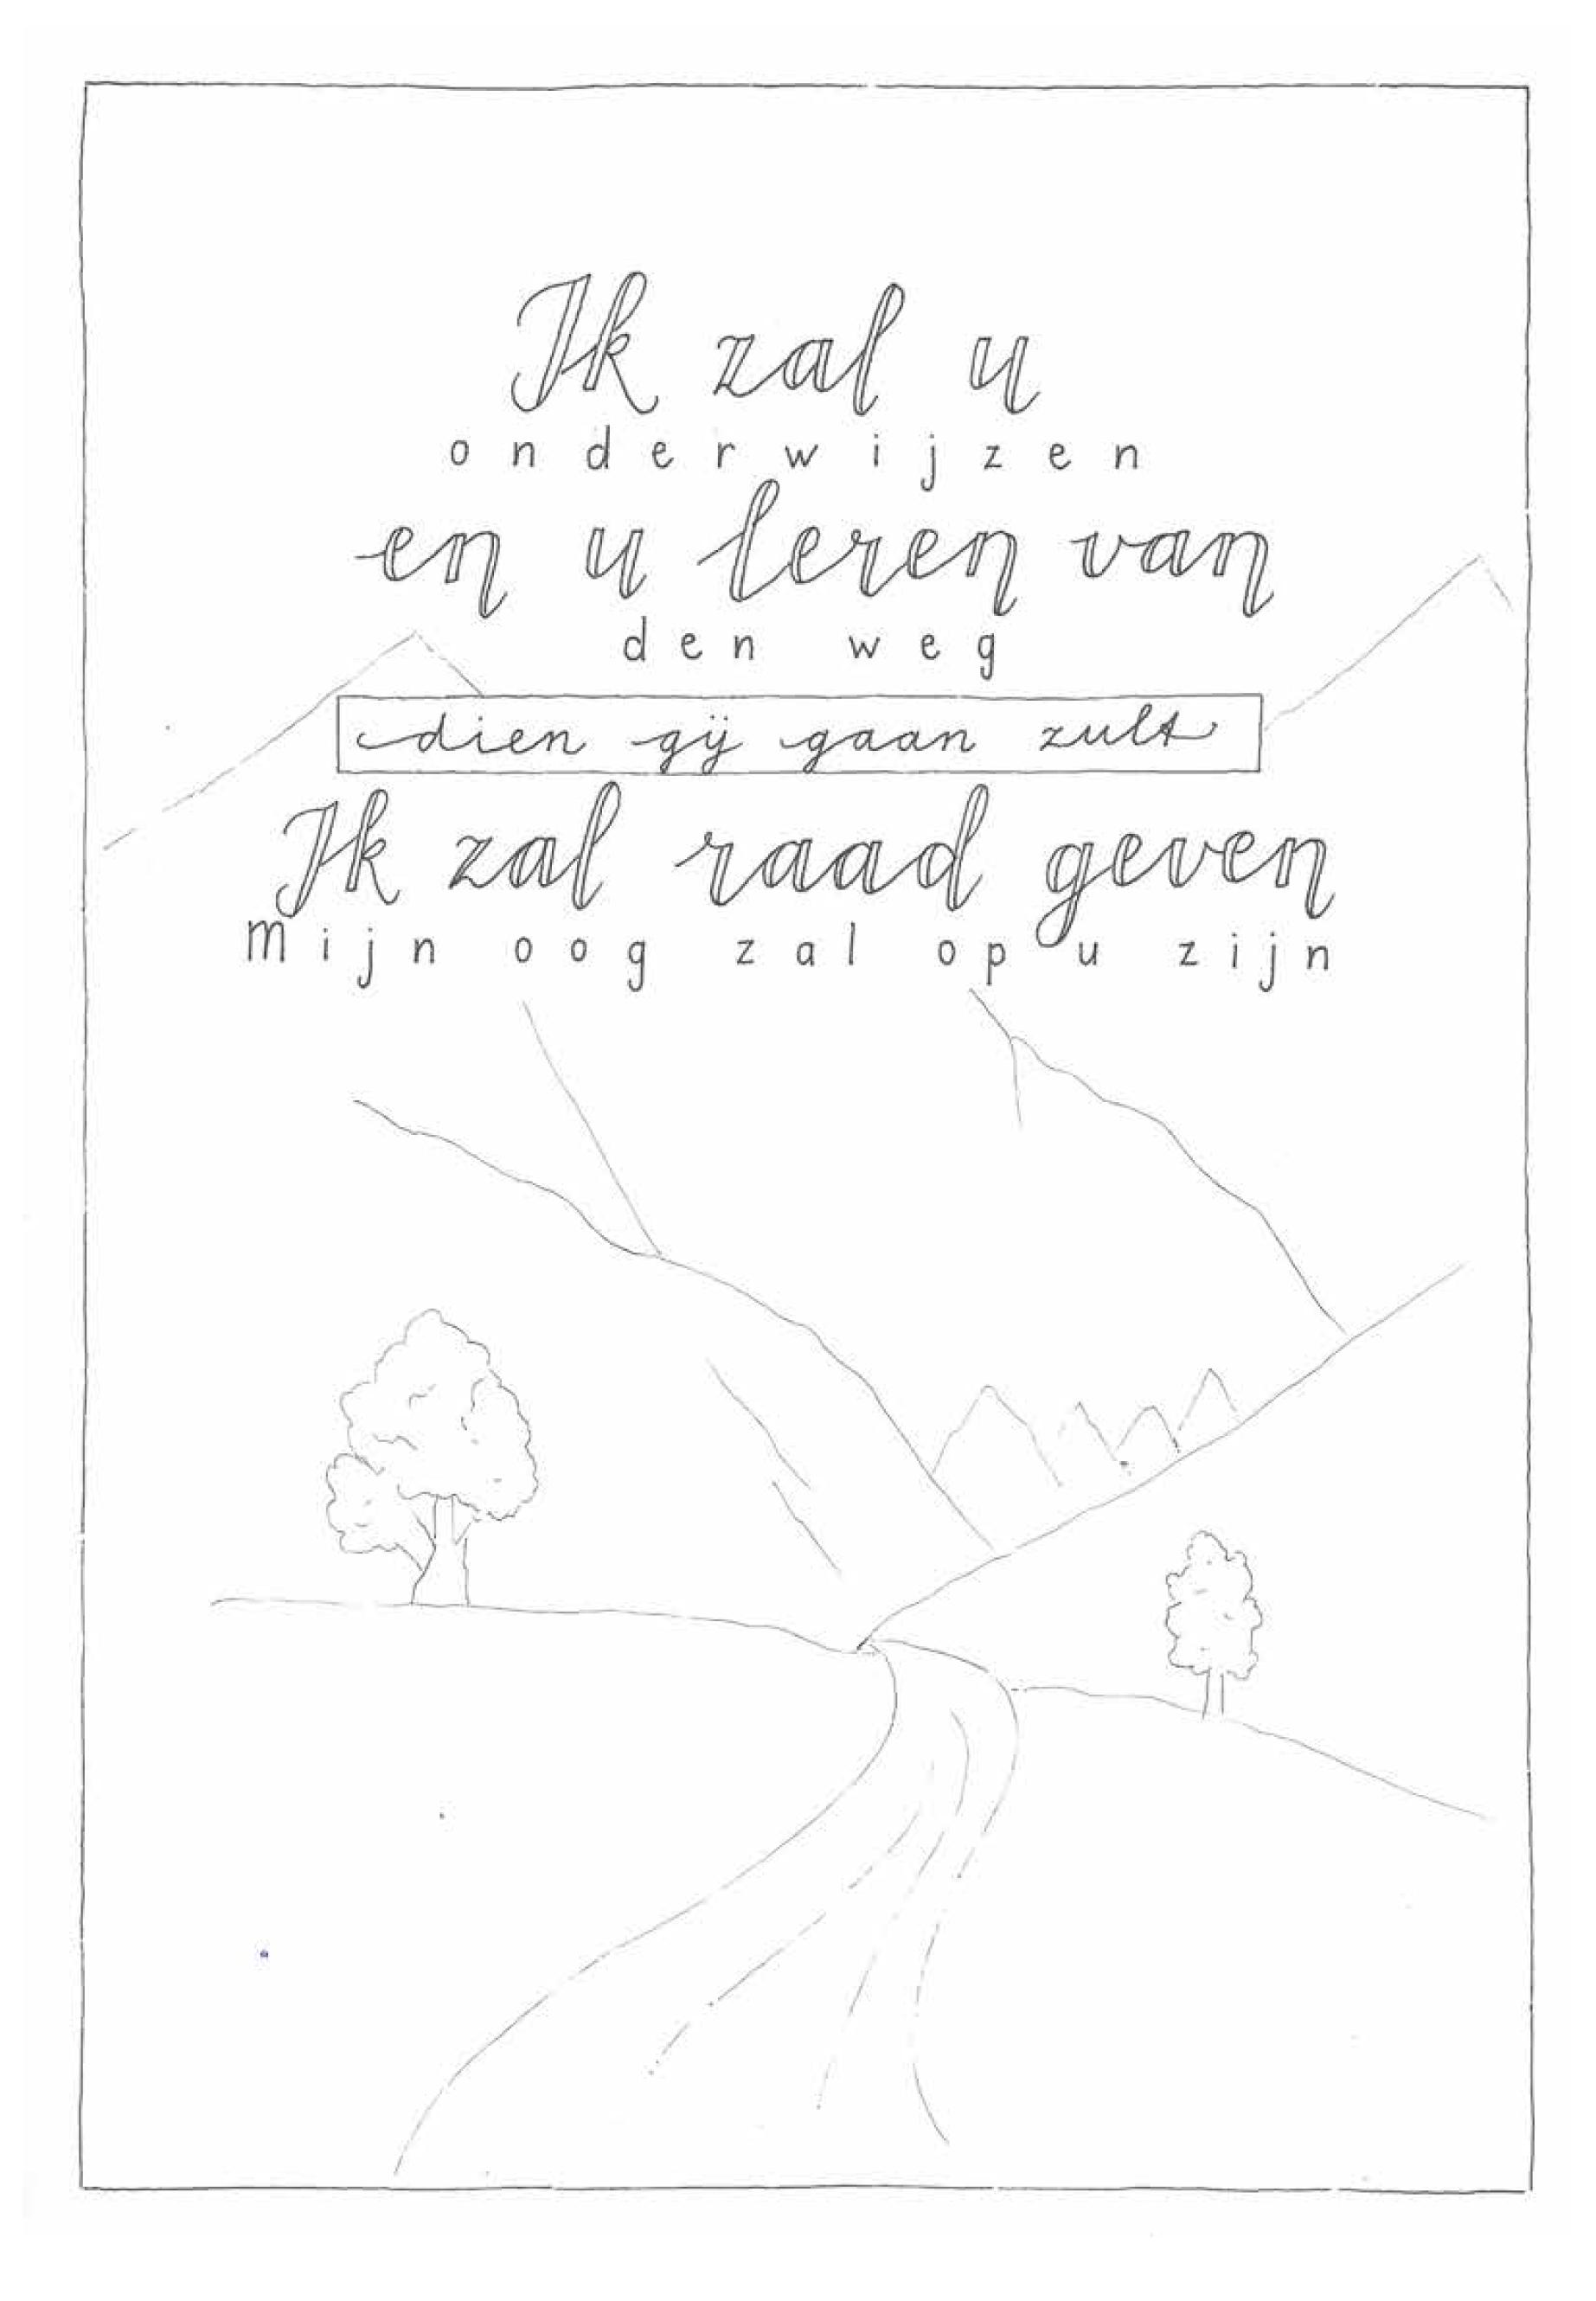 Ik zal u
onderwijzen
en u leren van
den weg
dien gij gaan zult
Ik zal raad geven
Mijn oog zal op u zijn